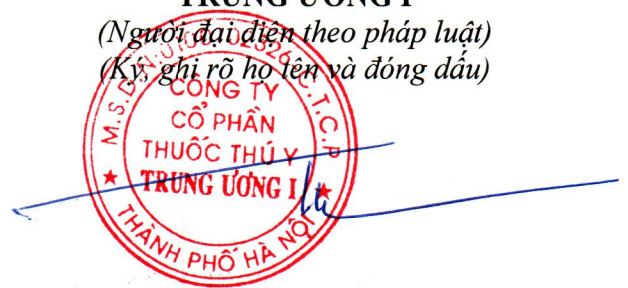 TRUNG ƯƠNG I
(Người đại diện theo pháp luật)
(Ký, ghi rõ họ tên và đóng dấu)
CÔNG TY
CỔ PHẦN
THUỐC THÚ Y
TRUNG ƯƠNG I
THÀNH PHỐ HÀ NỘI